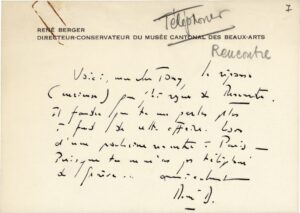 I
Téléphoner
RENÉ BERGER
DIRECTEUR-CONSERVATEUR DU MUSÉE CANTONAL DES BEAUX-ARTS
Rencontre
Voici, mon cher Tony, la réponse
( ) par l' de Rencontre.
Il faudra que tu me parles plus
à fond de cette affaire. Lors
d'une prochaine rencontre à Paris —
Puisque tu m'as téléphoné
de Genève. amicalement
René B.